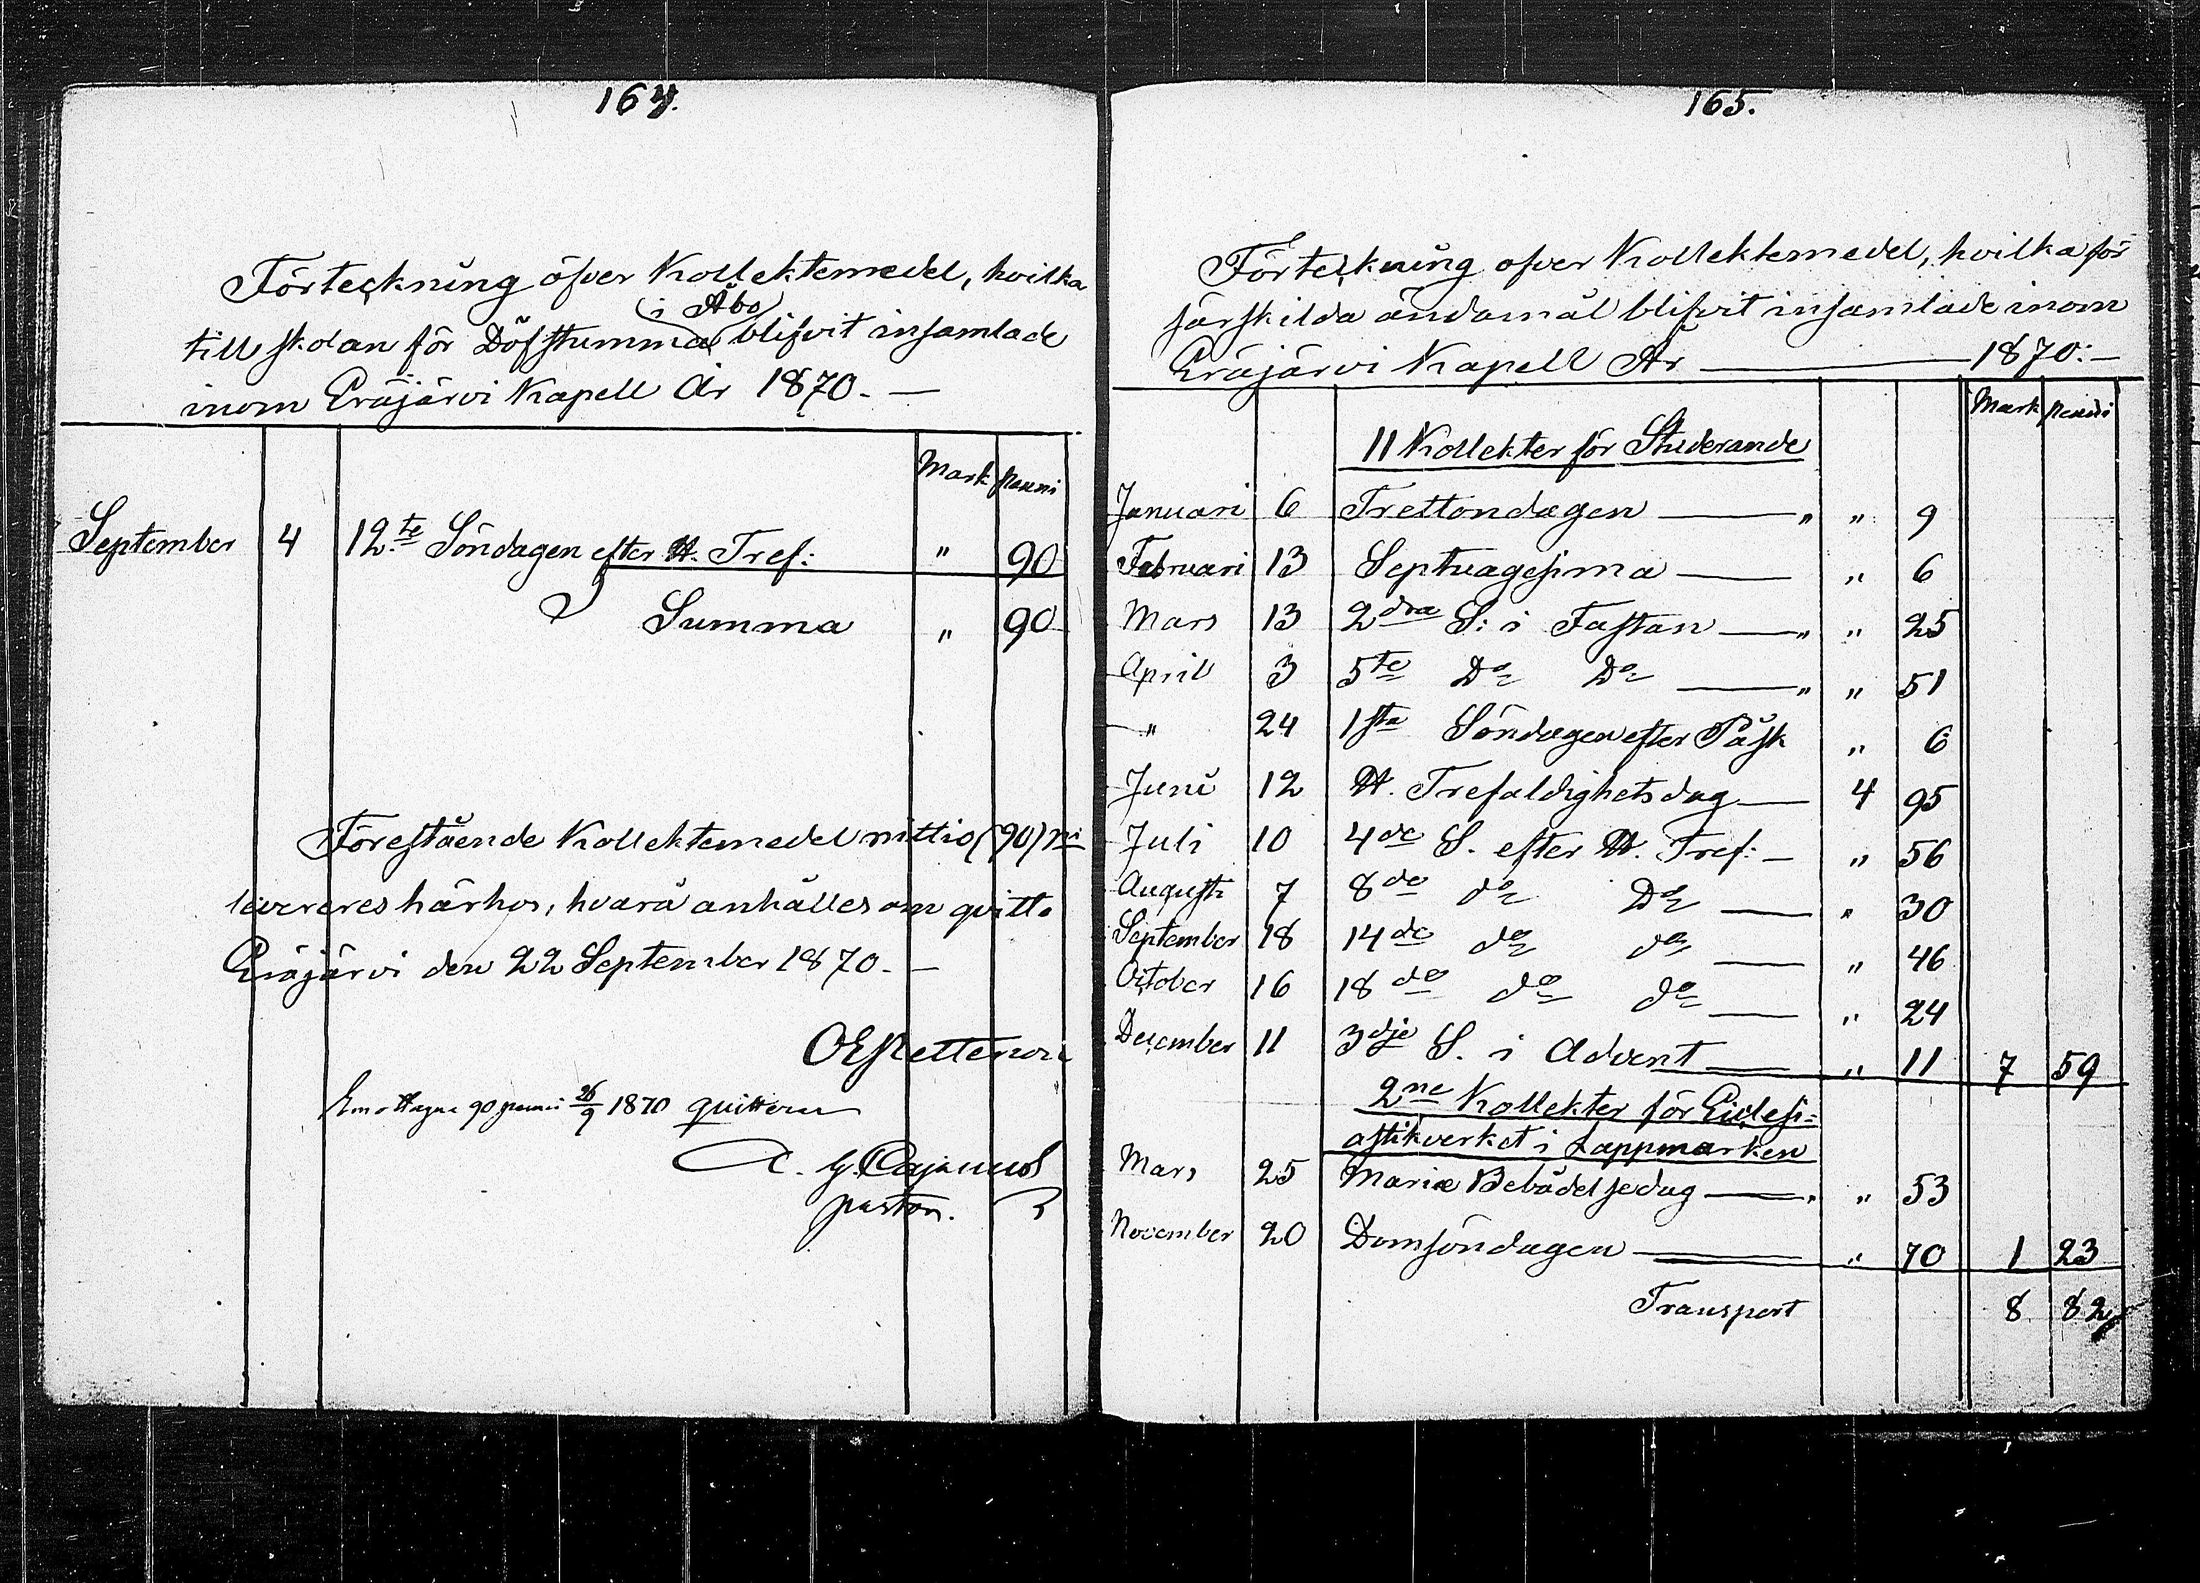 164.
Förteckning öfver Kollektemedel, hvilka
i Åbo
till skolan för Döfstumma blifvit insamlade
inom Eräjärvi Kapell År 1870. —
Mark penni
September 4 12te Söndagen efter H. Tref: " 90
Summa " 90
Förestående Kollektemedel nittio (90) pi
levereres härhos, hvarå anhålles om qvitto
Eräjärvi den 22 September 1870. —
Emottagna 90 penni 26/9 1870 quitteras
pastor.
165.
Förteckning öfver Kollektemedel, hvilka för
särskilda ändamål blifvit insamlade inom
Eräjärvi Kapell År — 1870: —
Mark penni
11 Kollekter för Studerande
Januari 6 Trettondagen — " " 9
Februari 13 Septuagesima — " 6
Mars 13 2dra S: i Fastan — " " 25
April 3 5te Do Do — " " 51
" 24 1sta Söndagen efter Påsk " 6
Juni 12 H. Trefaldighetsdag — 4 95
Juli 10 4de S. efter H. Tref: — " 56
Augusti 7 8de do Do — " 30
September 18 14de do do — " 46
October 16 18de do do — " 24
December 11 3dje S. i Advent — " 11 7 59
2ne Kollekter för Ecclesi=
astikverket i Lappmarken
Mars 25 Mariæ Bebådelsedag — " " 53
November 20 Domsöndagen — " 70 1 23
Transport 8 82